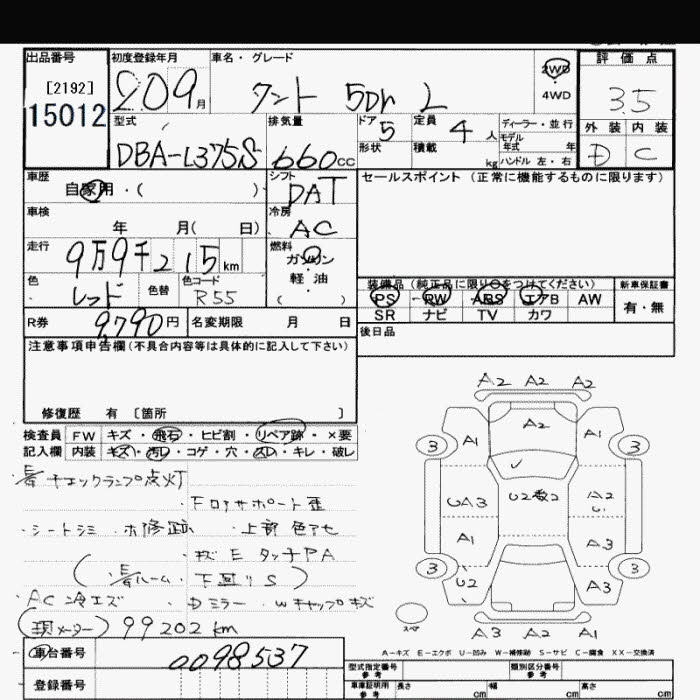 出品番号 初度登録年月 車名・グレード 2WD 評価点
[2192]
15012 209月 タント 5Dr L 4WD 3.5
型式 排気量 ドア 定員 ディーラー・並行 外装 内装
DBA-L375S 660CC 5 4人 モデル年式 年 D C
形状 積載 kg ハンドル 左・右
車歴 シフト セールスポイント (正常に機能するものに限ります)
自家用・( ) DAT
車検 冷房
年 月( 日) AC
走行 燃料
9万9千215km ガソリン
色 色替 色コード 軽油
レッド R55 ( )
装備品 (純正品に限り○をつけてください) 新車保証書
PS RW ABS エアB AW 有・無
SR ナビ TV カワ
R券 9,790円 名変期限 月 日 後日品
注意事項申告欄(不具合内容等は具体的に記入して下さい)
修復歴 有 〔箇所 〕
検査員 FW キズ・飛石・ヒビ割・リペア跡・×要
記入欄 内装 キズ・汚レ・コゲ・穴・スレ・キレ・破レ
チェックランプ点灯
・シートシミ 補修跡 ・上部色アセ
下廻りS
・AC冷エズ ・Dミラー・Wキャップキズ
(現メーター) 99202km
車台番号 0098537
登録番号
A2 A2 A2
A2
3 A1 A1 3
UA3 U2 A2
A1 A3
3 U2 A3 3
スペア
A3 A2 A1
A-キズ E-エクボ U-凹み W-補修跡 S-サビ C-腐食 XX-交換済
型式指定番号 参考 類別区分番号 参考
車庫証明用 参考 長さ cm 幅 cm 高さ cm